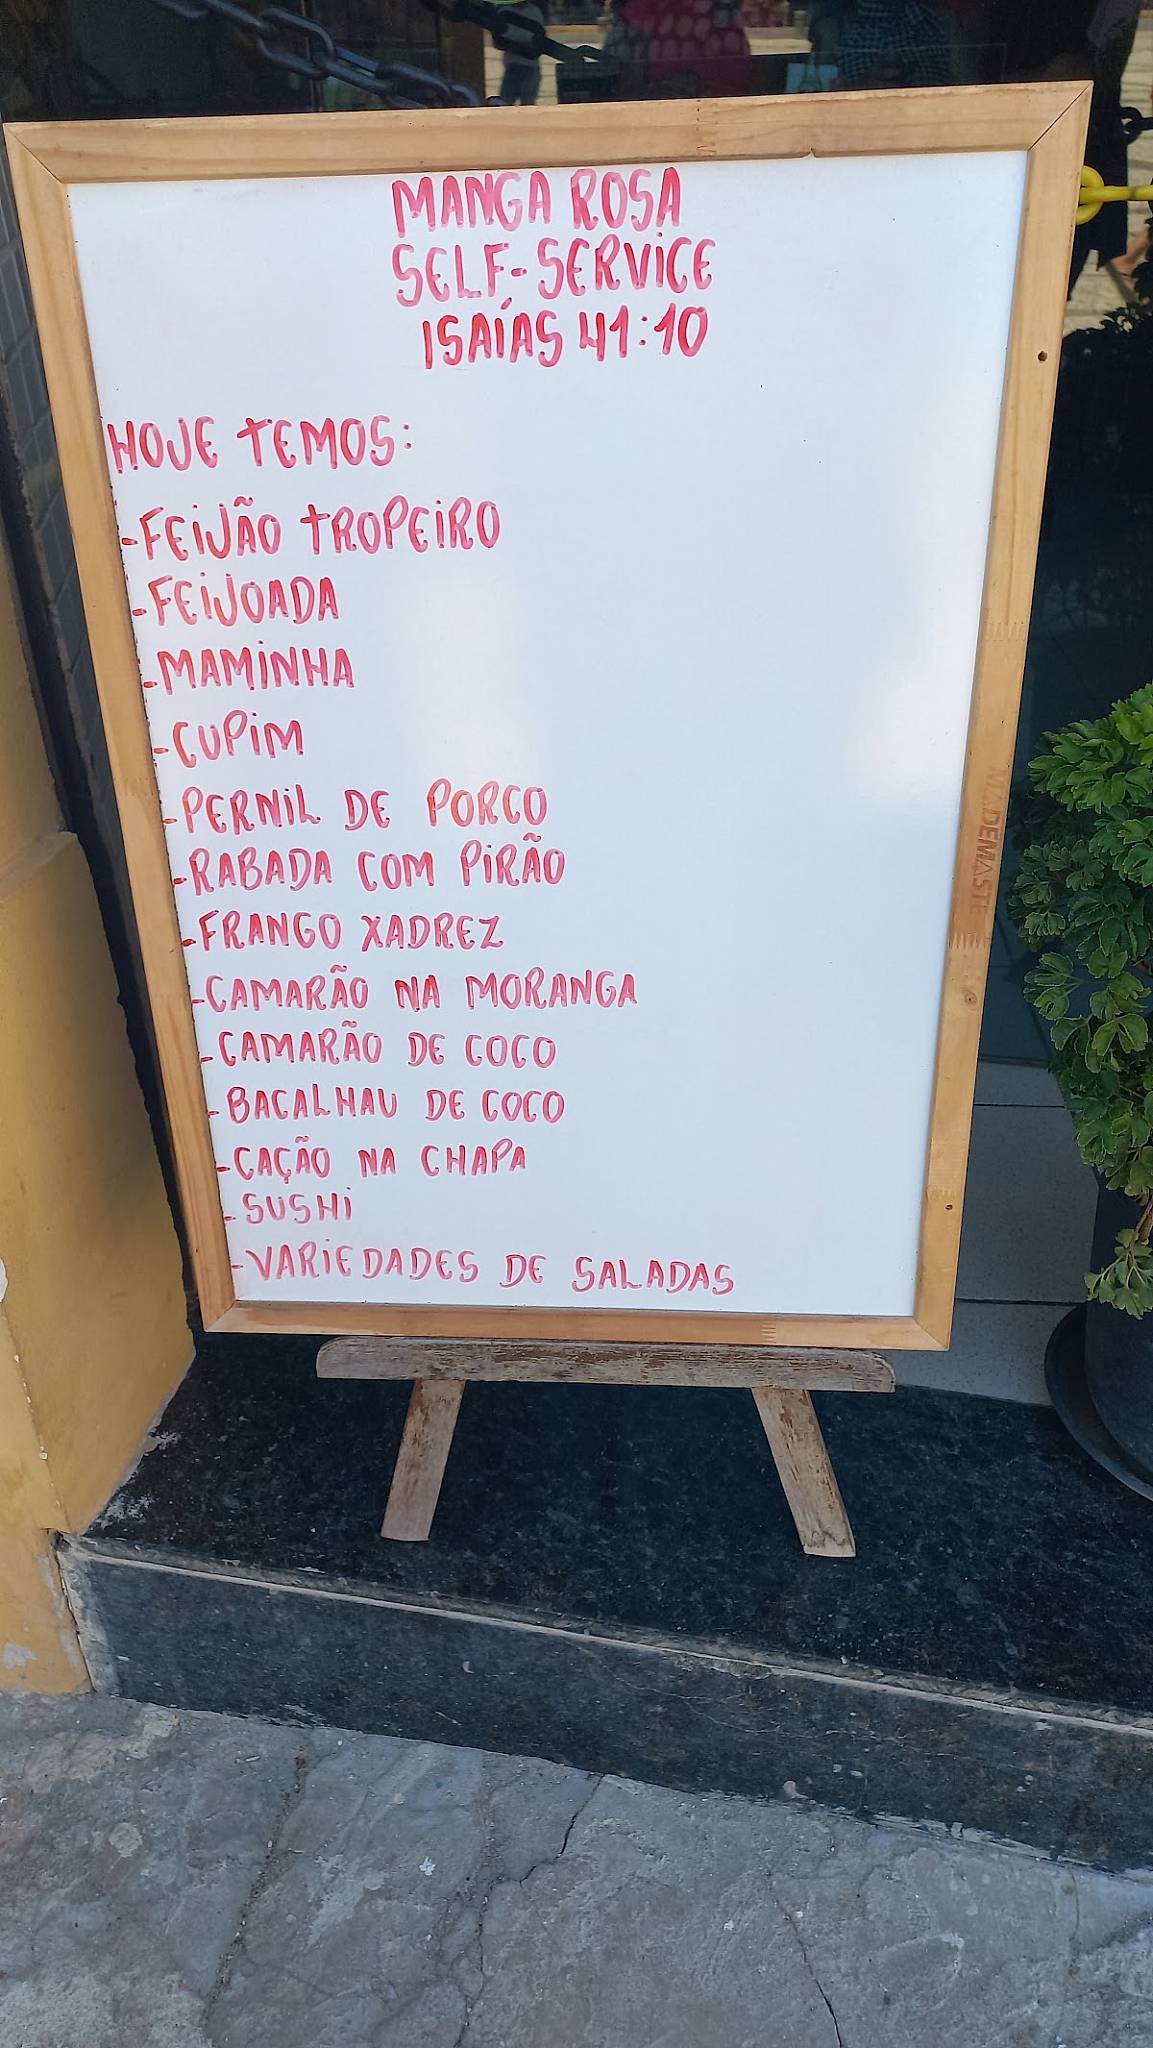 MANGA ROSA
SELF-SERVICE
ISAÍAS 41:10
HOJE TEMOS:
-FEIJÃO TROPEIRO
-FEIJOADA
-MAMINHA
-CUPIM
-PERNIL DE PORCO
-RABADA COM PIRÃO
-FRANGO XADREZ
-CAMARÃO NA MORANGA
-CAMARÃO DE COCO
-BACALHAU DE COCO
-CAÇÃO NA CHAPA
-SUSHI
-VARIEDADES DE SALADAS
MADEMASTE